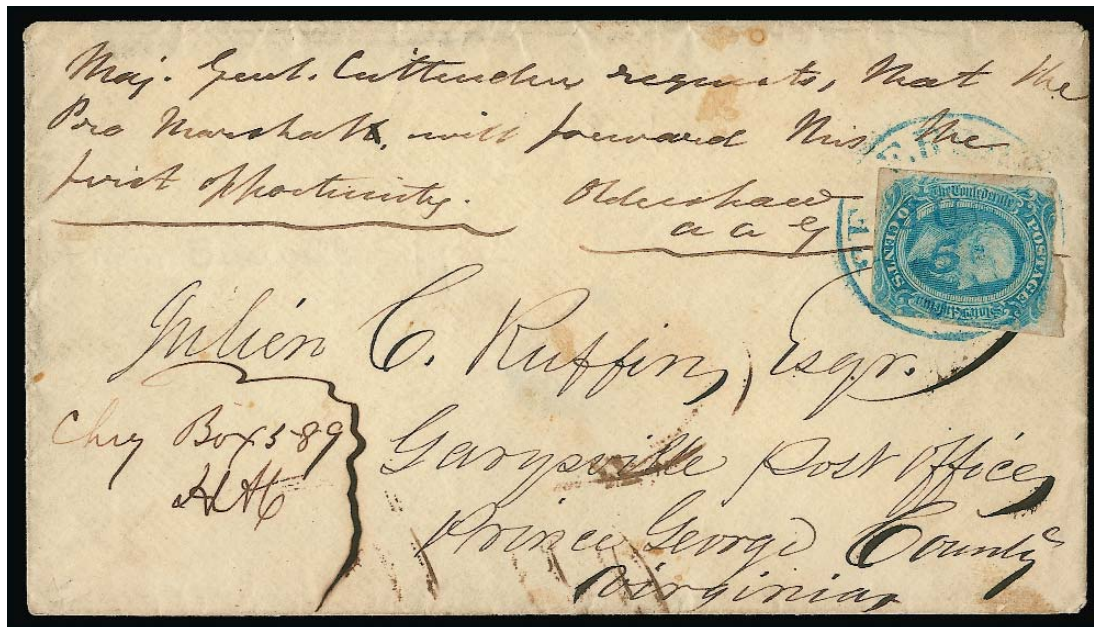 Maj. Genl. Crittenden requests, that the
Pro Marshall, will forward this, the
first opportunity.
Oldershaw
a a G
The Confederate
POSTAGE
CENTS
States of America
Julien C. Ruffin, Esqr.
Chg Box 589
Garysville Post office,
Prince George County
Virginia,